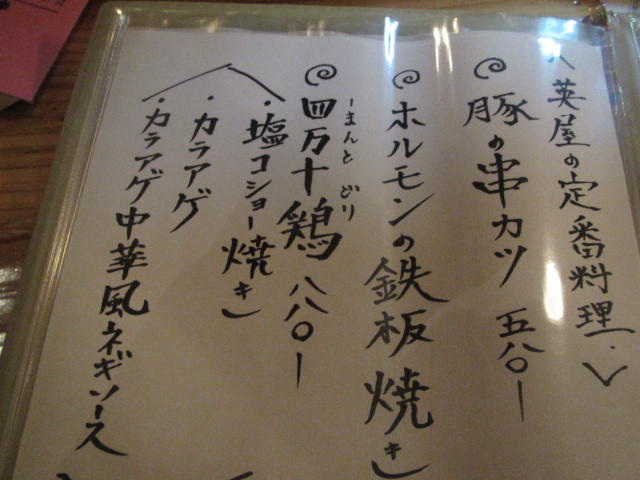 英屋の定番料理
豚の串カツ 五八〇ー
ホルモンの鉄板焼き
四万十鶏 八八〇ー
しまんとどり
・塩コショー焼き
・カラアゲ
・カラアゲ中華風ネギソース